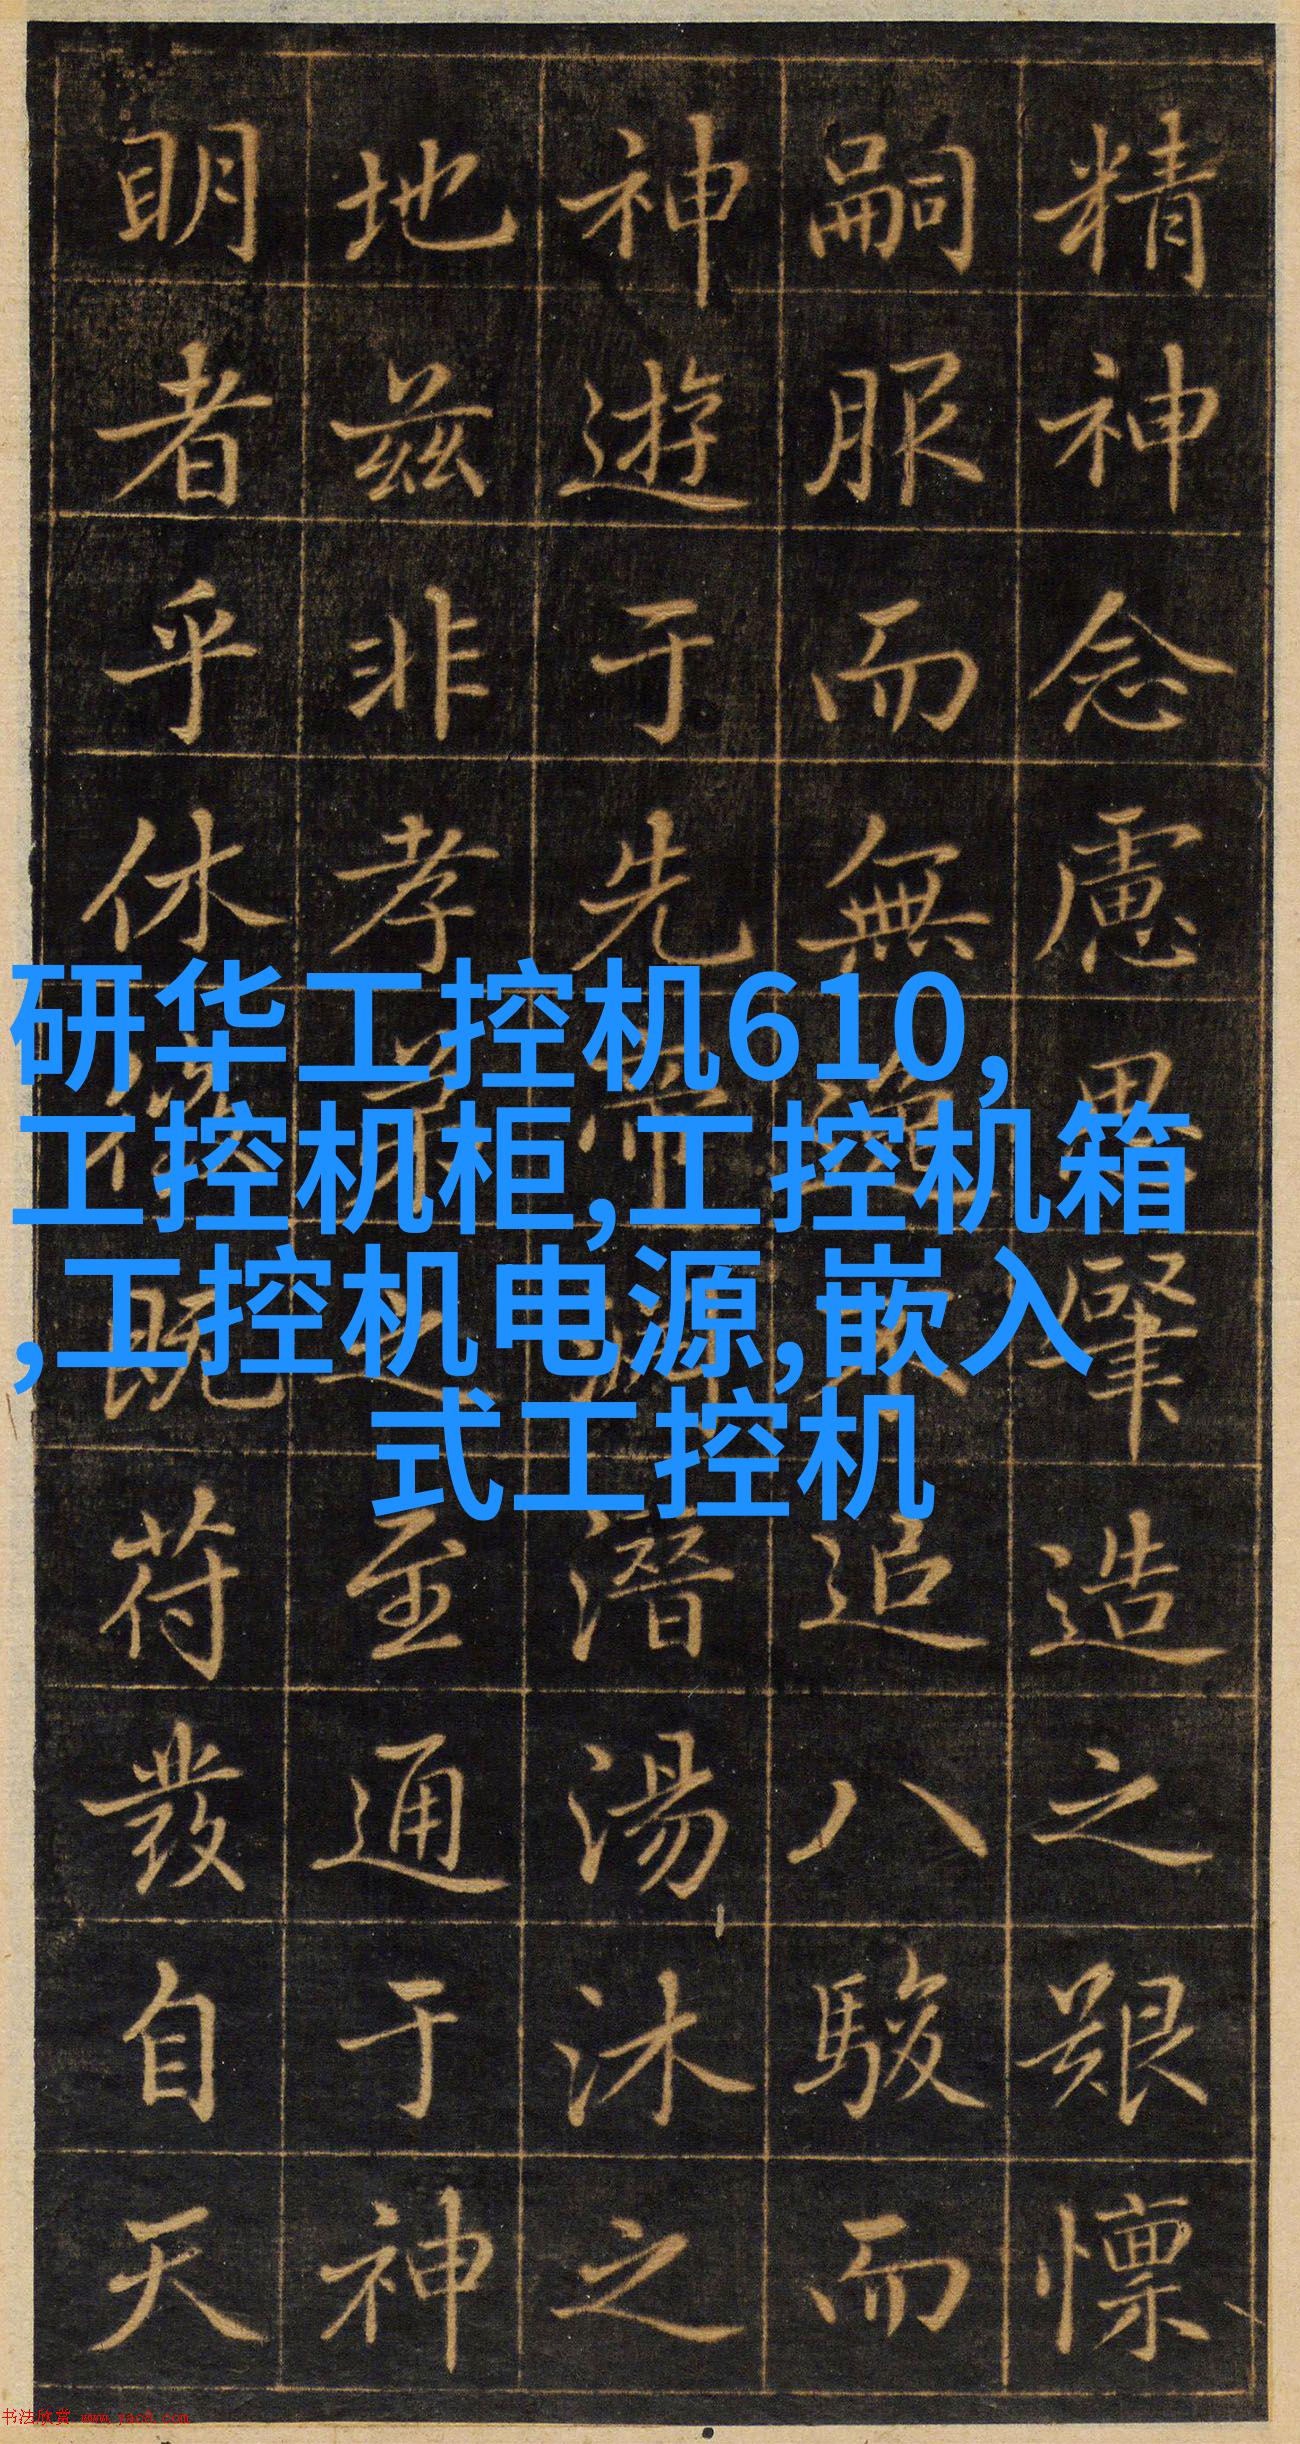 精神念慮肇造之艱懍
嗣服而無追八駿而
神遊于先帝潛湯沐之
地茲非孝之至通于神
明者乎休徵既苻發自天
研华工控机610,
工控机柜,工控机箱
,工控机电源,嵌入
式工控机
书法欣赏 www.yac8.com